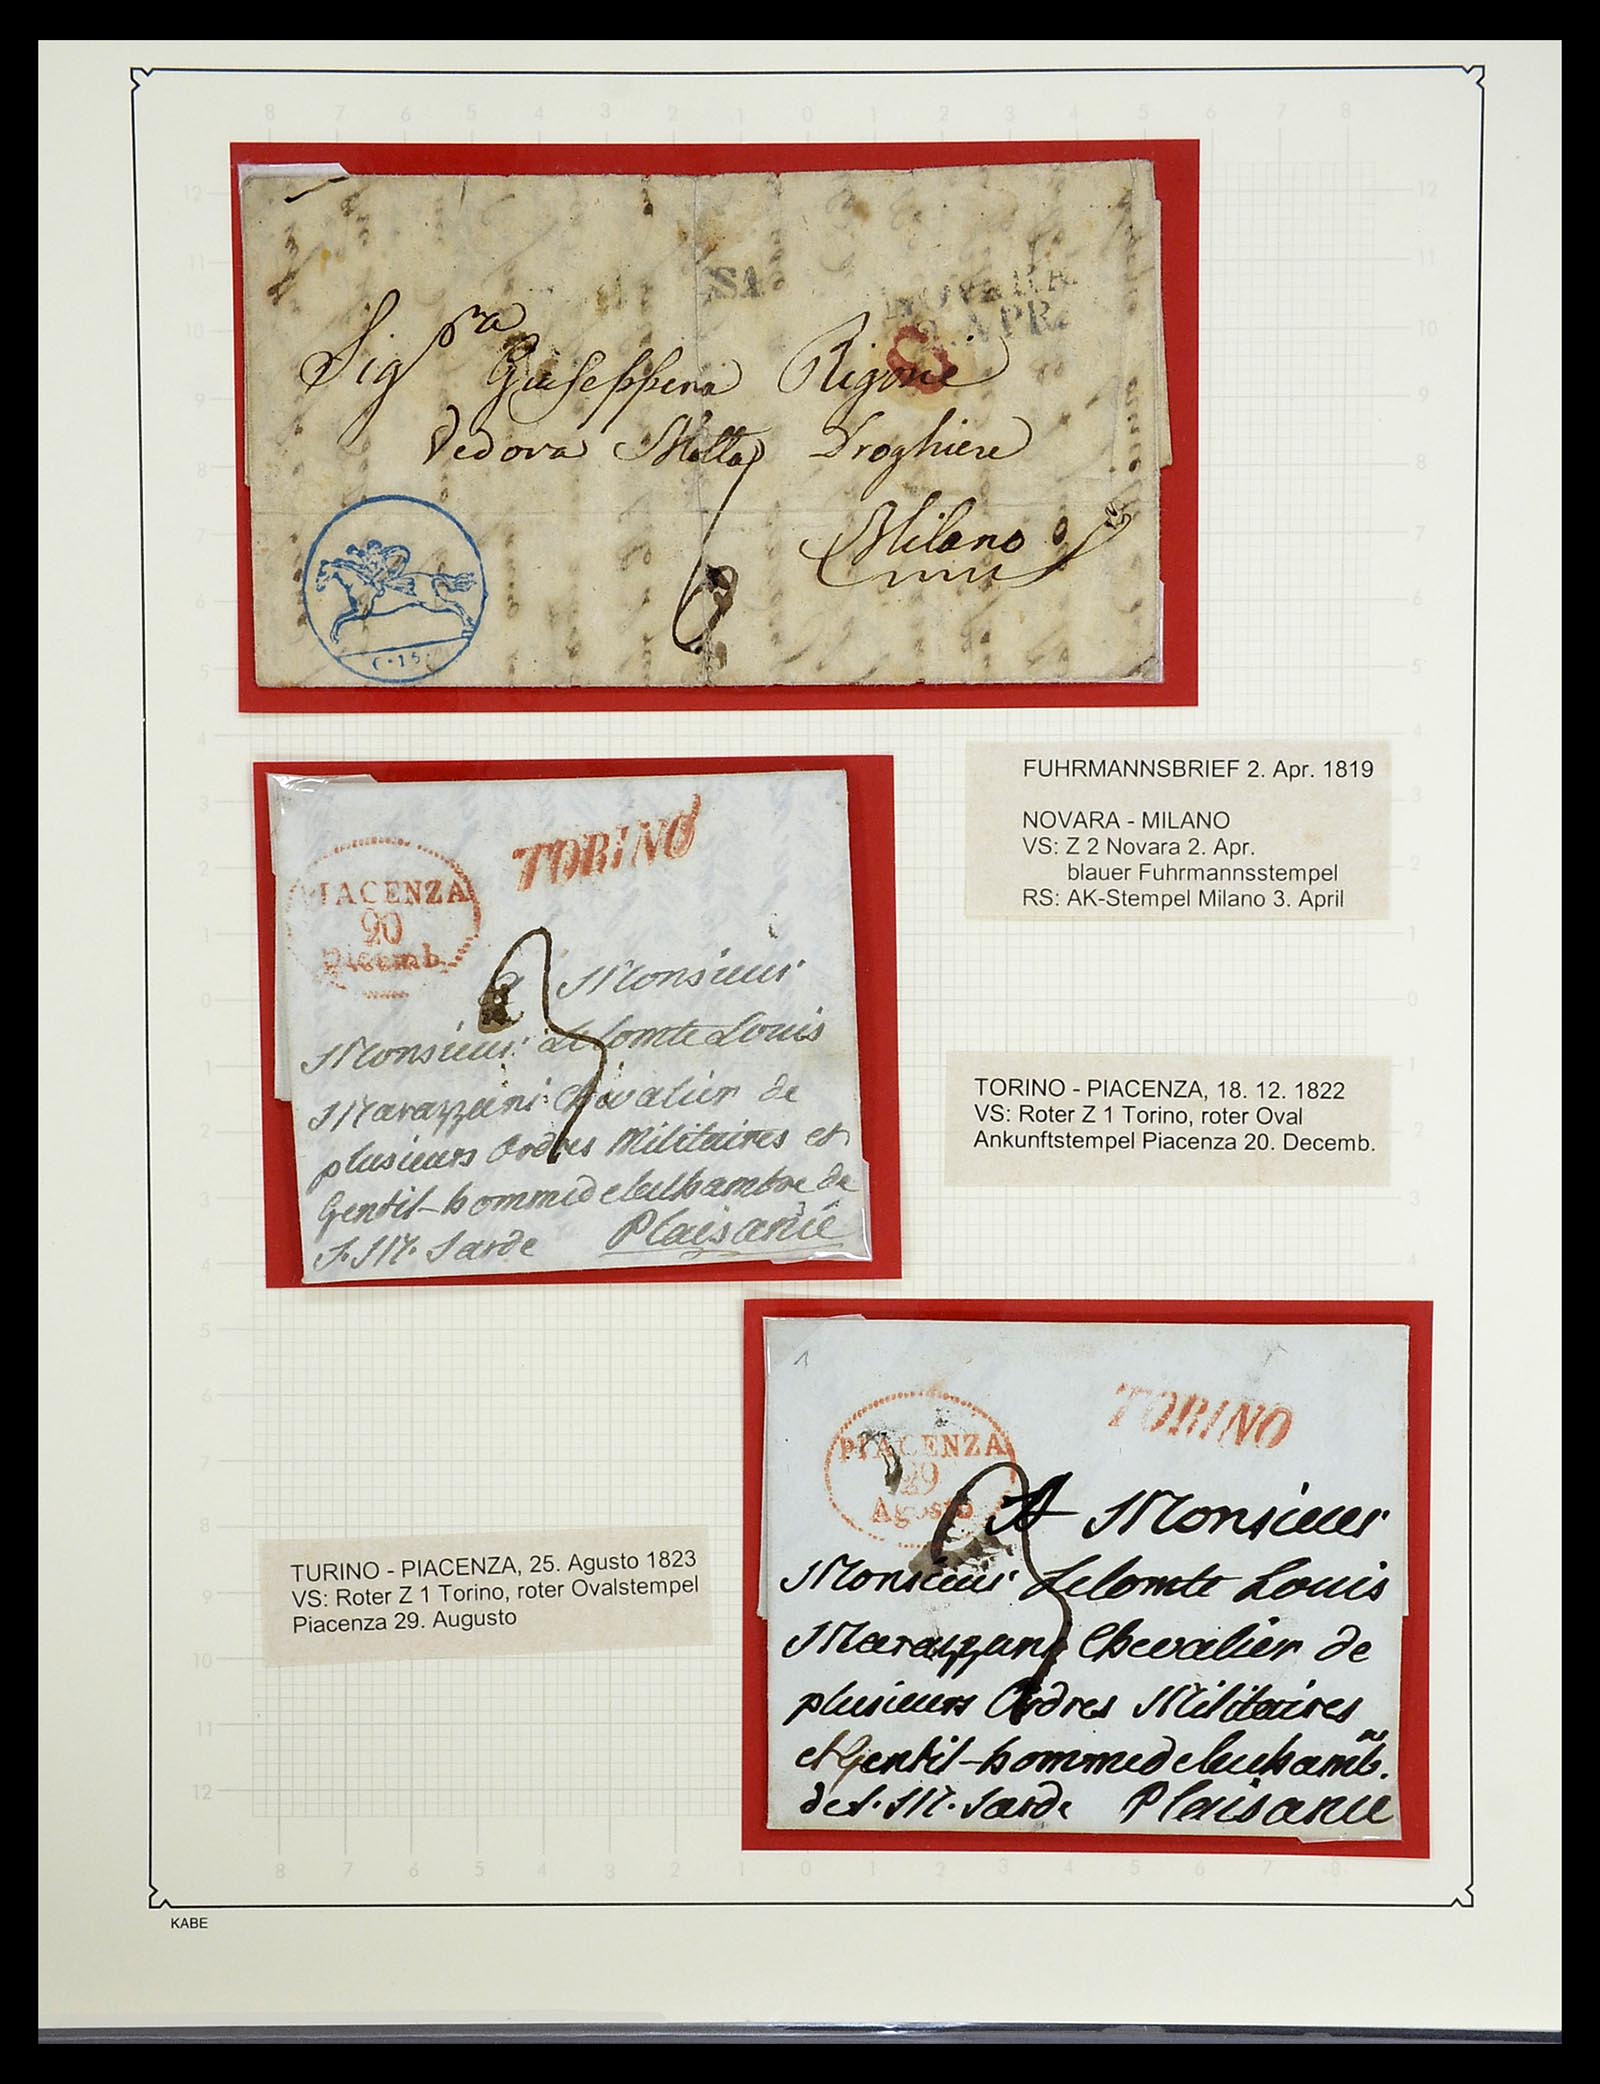 8 7 6 5 4 3 2 1 0 1 2 3 4 5 6 7 8
SA
NOVARA
2 APR.
Sig.ra Giuseppina Rigoni
Vedova Motta Droghiere
Milano
6
C. 15
FUHRMANNSBRIEF 2. Apr. 1819
NOVARA - MILANO
VS: Z 2 Novara 2. Apr.
blauer Fuhrmannsstempel
RS: AK-Stempel Milano 3. April
TORINO
PIACENZA
20
Dicemb.
3
a Monsieur
Monsieur Le Comte Louis
Marazzani Chevalier de
plusieurs Ordres Militaires et
Gentil-homme de la chambre de
S. M. Sarde Plaisance
TORINO - PIACENZA, 18. 12. 1822
VS: Roter Z 1 Torino, roter Oval
Ankunftstempel Piacenza 20. Decemb.
1
TORINO
PIACENZA
29
Agosto
3
A Monsieur
Monsieur Le Comte Louis
Marazzani Chevalier de
plusieurs Ordres Militaires
et Gentil-homme de la chamb.re
de S. M. Sarde Plaisance
TURINO - PIACENZA, 25. Agusto 1823
VS: Roter Z 1 Torino, roter Ovalstempel
Piacenza 29. Augusto
8 7 6 5 4 3 2 1 0 1 2 3 4 5 6 7 8
KABE